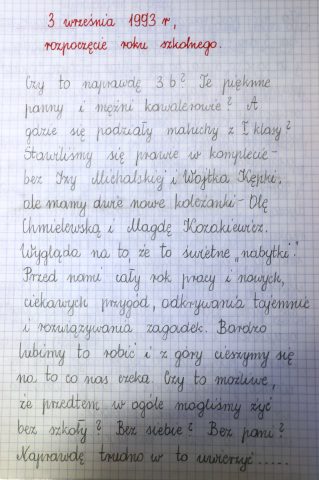 3 września 1993 r,
rozpoczęcie roku szkolnego.
Czy to naprawdę 3b? Te piękne
panny i mężni kawalerowie? A
gdzie się podziały maluchy z I klasy?
Stawiliśmy się prawie w komplecie -
bez Izy Michalskiej i Wojtka Kępki,
ale mamy dwie nowe koleżanki - Olę
Chmielewską i Magdę Kozakiewicz.
Wygląda na to, że to świetne „nabytki".
Przed nami cały rok pracy i nowych,
ciekawych przygód, odkrywania tajemnic
i rozwiązywania zagadek. Bardzo
lubimy to robić i z góry cieszymy się
na to co nas czeka. Czy to możliwe,
że przedtem w ogóle mogliśmy żyć
bez szkoły? Bez siebie? Bez pani?
Naprawdę trudno w to uwierzyć.....